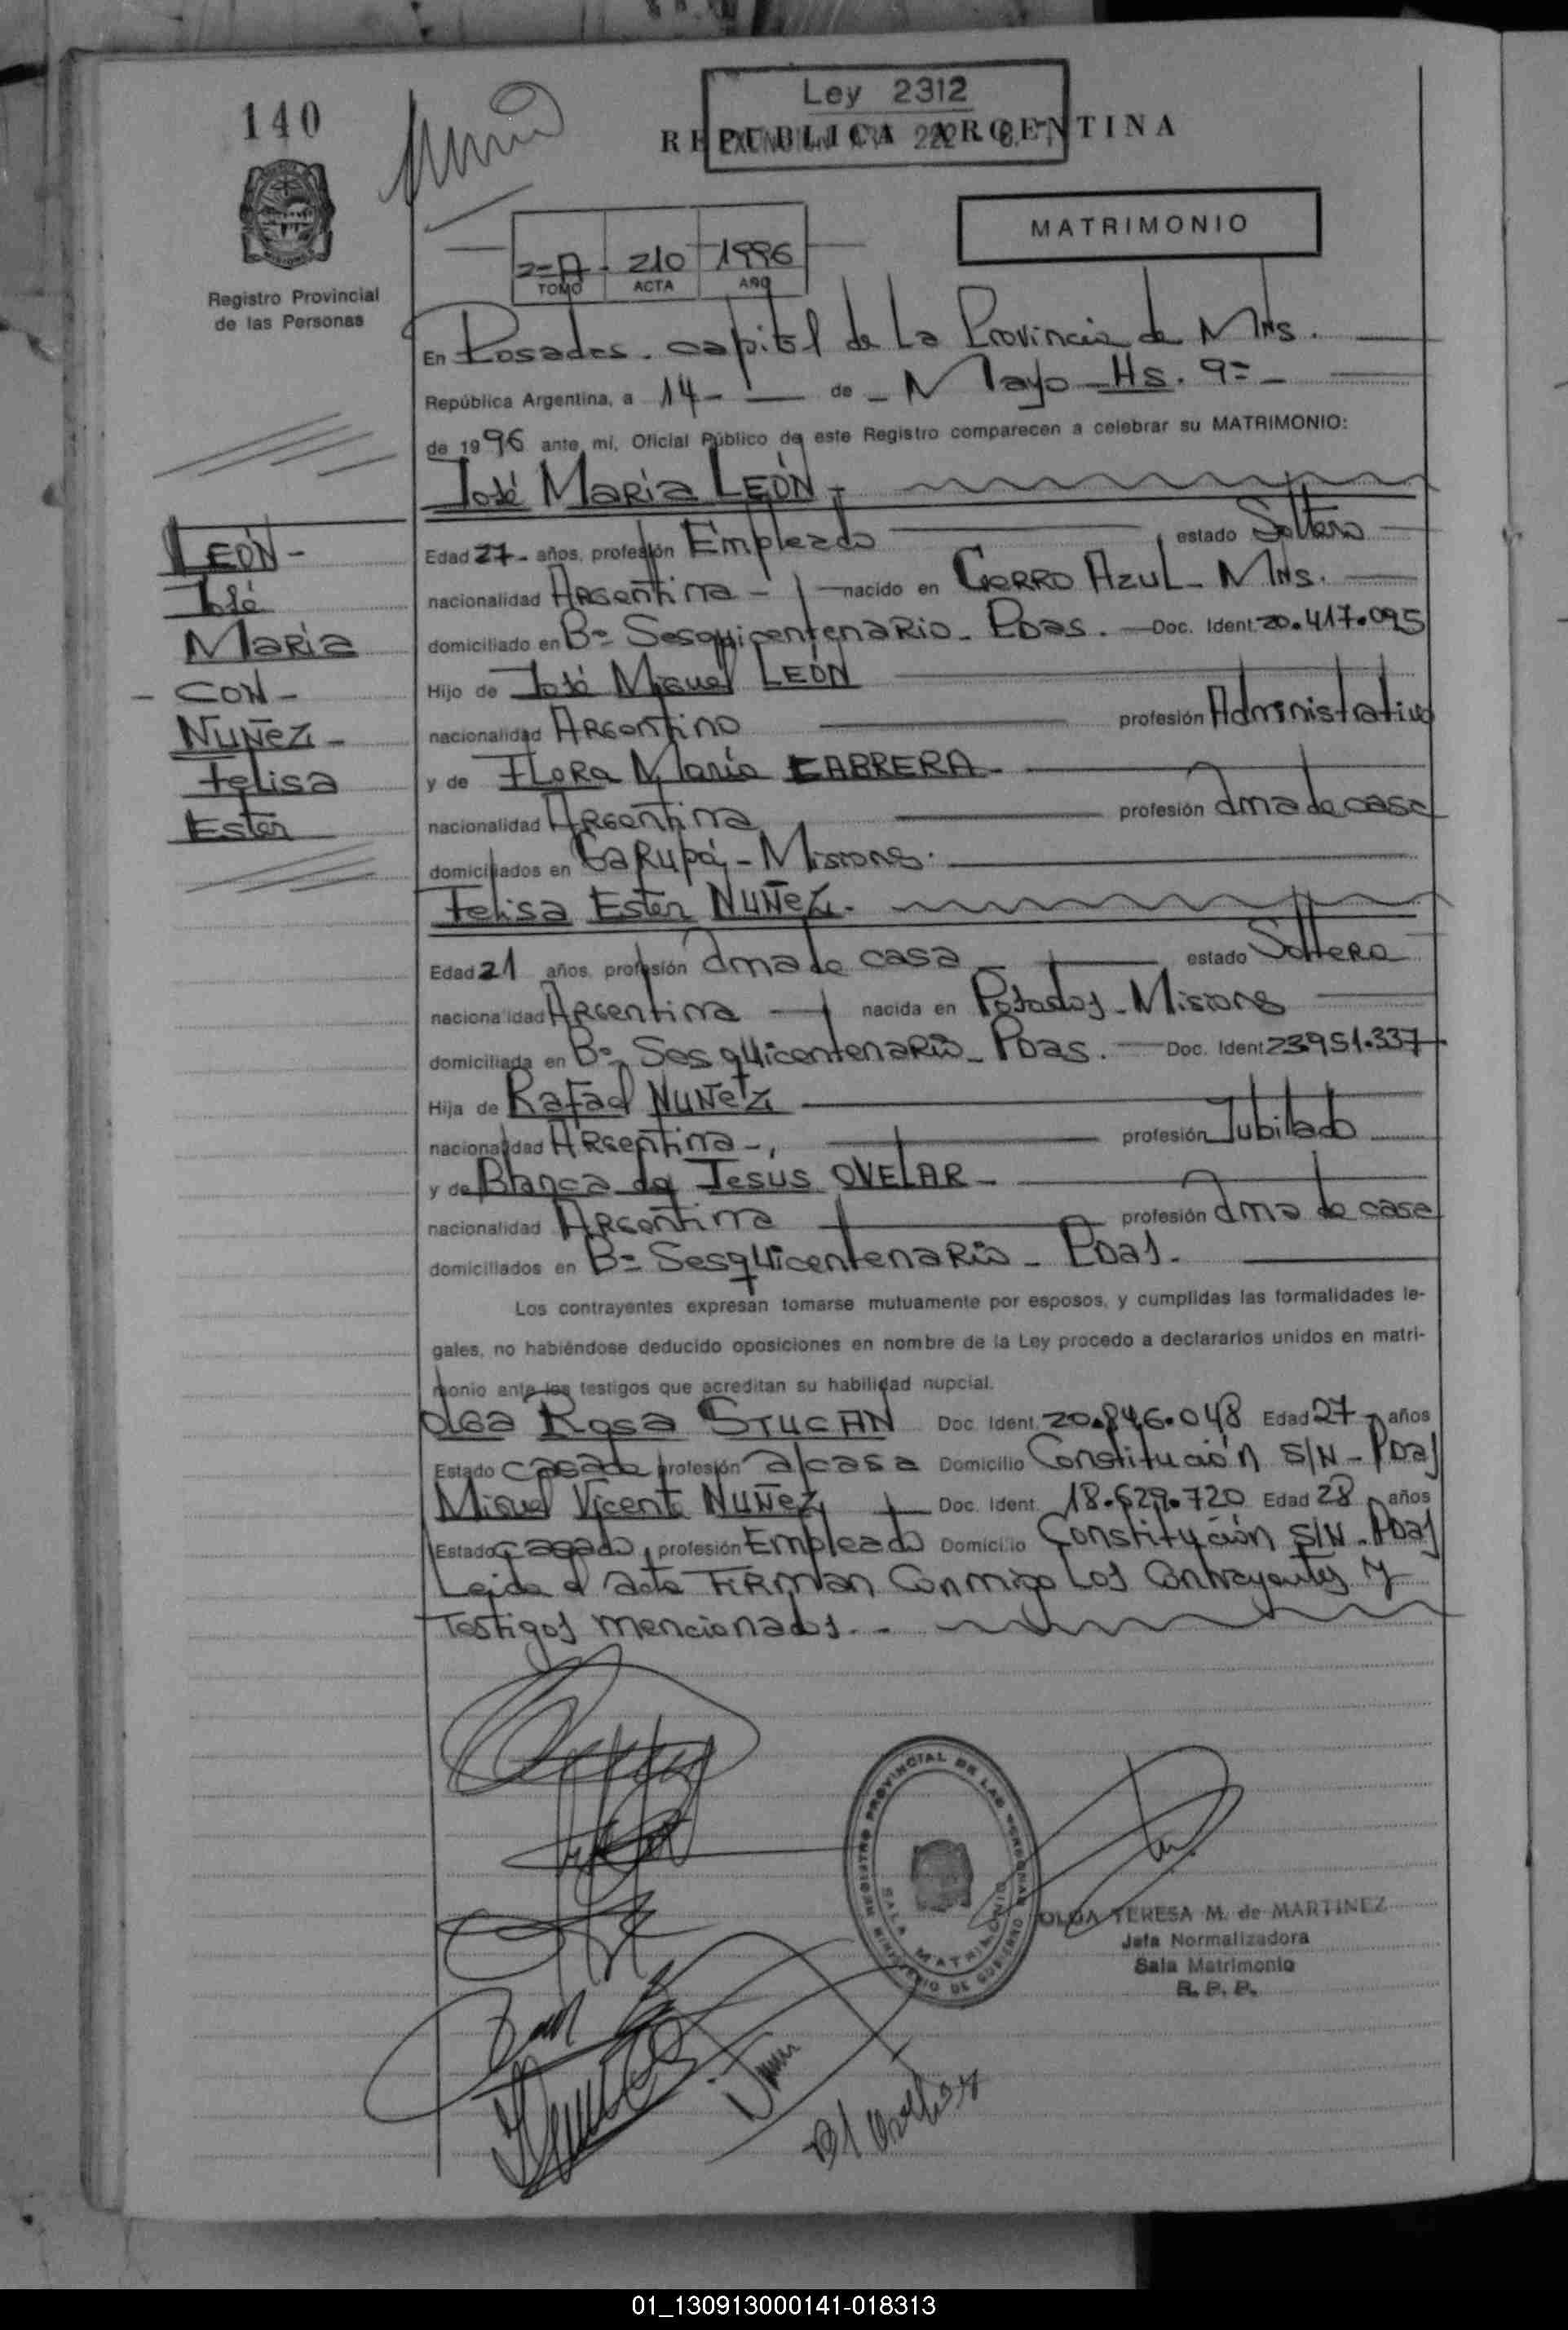 140
Ley 2312
REPUBLICA ARGENTINA
MATRIMONIO
2=A - 210 1996
TOMO ACTA AÑO
Registro Provincial
de las Personas
En Posadas. capital de La Provincia de Mns.
República Argentina, a 14 - de - Mayo - Hs. 9=
de 1996 ante mi, Oficial Público de este Registro comparecen a celebrar su MATRIMONIO:
José María LEÓN -
LEÓN -
José
María
- CON -
NUÑEZ -
Felisa
Ester
Edad 27 - años, profesión Empleado estado Soltero
nacionalidad Argentina - nacido en CERRO AZUL - Mns.
domiciliado en B= Sesquicentenario - Pdas. Doc. Ident. 20.417.095
Hijo de José Miguel LEÓN
nacionalidad Argentino profesión Administrativo
y de Flora María CABRERA -
nacionalidad Argentina profesión ama de casa
domiciliados en Garupá - Misiones.
Felisa Ester NUÑEZ.
Edad 21 años, profesión ama de casa estado Soltera
nacionalidad Argentina nacida en Posadas - Misiones
domiciliada en B= Sesquicentenario - Pdas. Doc. Ident 23.951.337
Hija de Rafael NUÑEZ
nacionalidad Argentina -, profesión Jubilado
y de Blanca de Jesus OVELAR -
nacionalidad Argentina profesión ama de casa
domiciliados en B= Sesquicentenario - Pdas.
Los contrayentes expresan tomarse mutuamente por esposos, y cumplidas las formalidades le-
gales, no habiéndose deducido oposiciones en nombre de la Ley procedo a declararlos unidos en matri-
monio ante los testigos que acreditan su habilidad nupcial.
Olga Rosa STUCAN Doc Ident. 20.846.048 Edad 27 años
Estado casada profesión a/casa Domicilio Constitución S/N - Pdas
Miguel Vicente NUÑEZ Doc. Ident. 18.629.720 Edad 28 años
Estado casado, profesión Empleado Domicilio Constitución S/N - Pdas
Leida el acta FIRMAN Conmigo Los Contrayentes y
Testigos mencionados. -
REGISTRO PROVINCIAL DE LAS PERSONAS
SALA MATRIMONIO
MINISTERIO DE GOBIERNO
OLGA TERESA M. de MARTINEZ
Jefa Normalizadora
Sala Matrimonio
R. P. P.
01_130913000141-018313